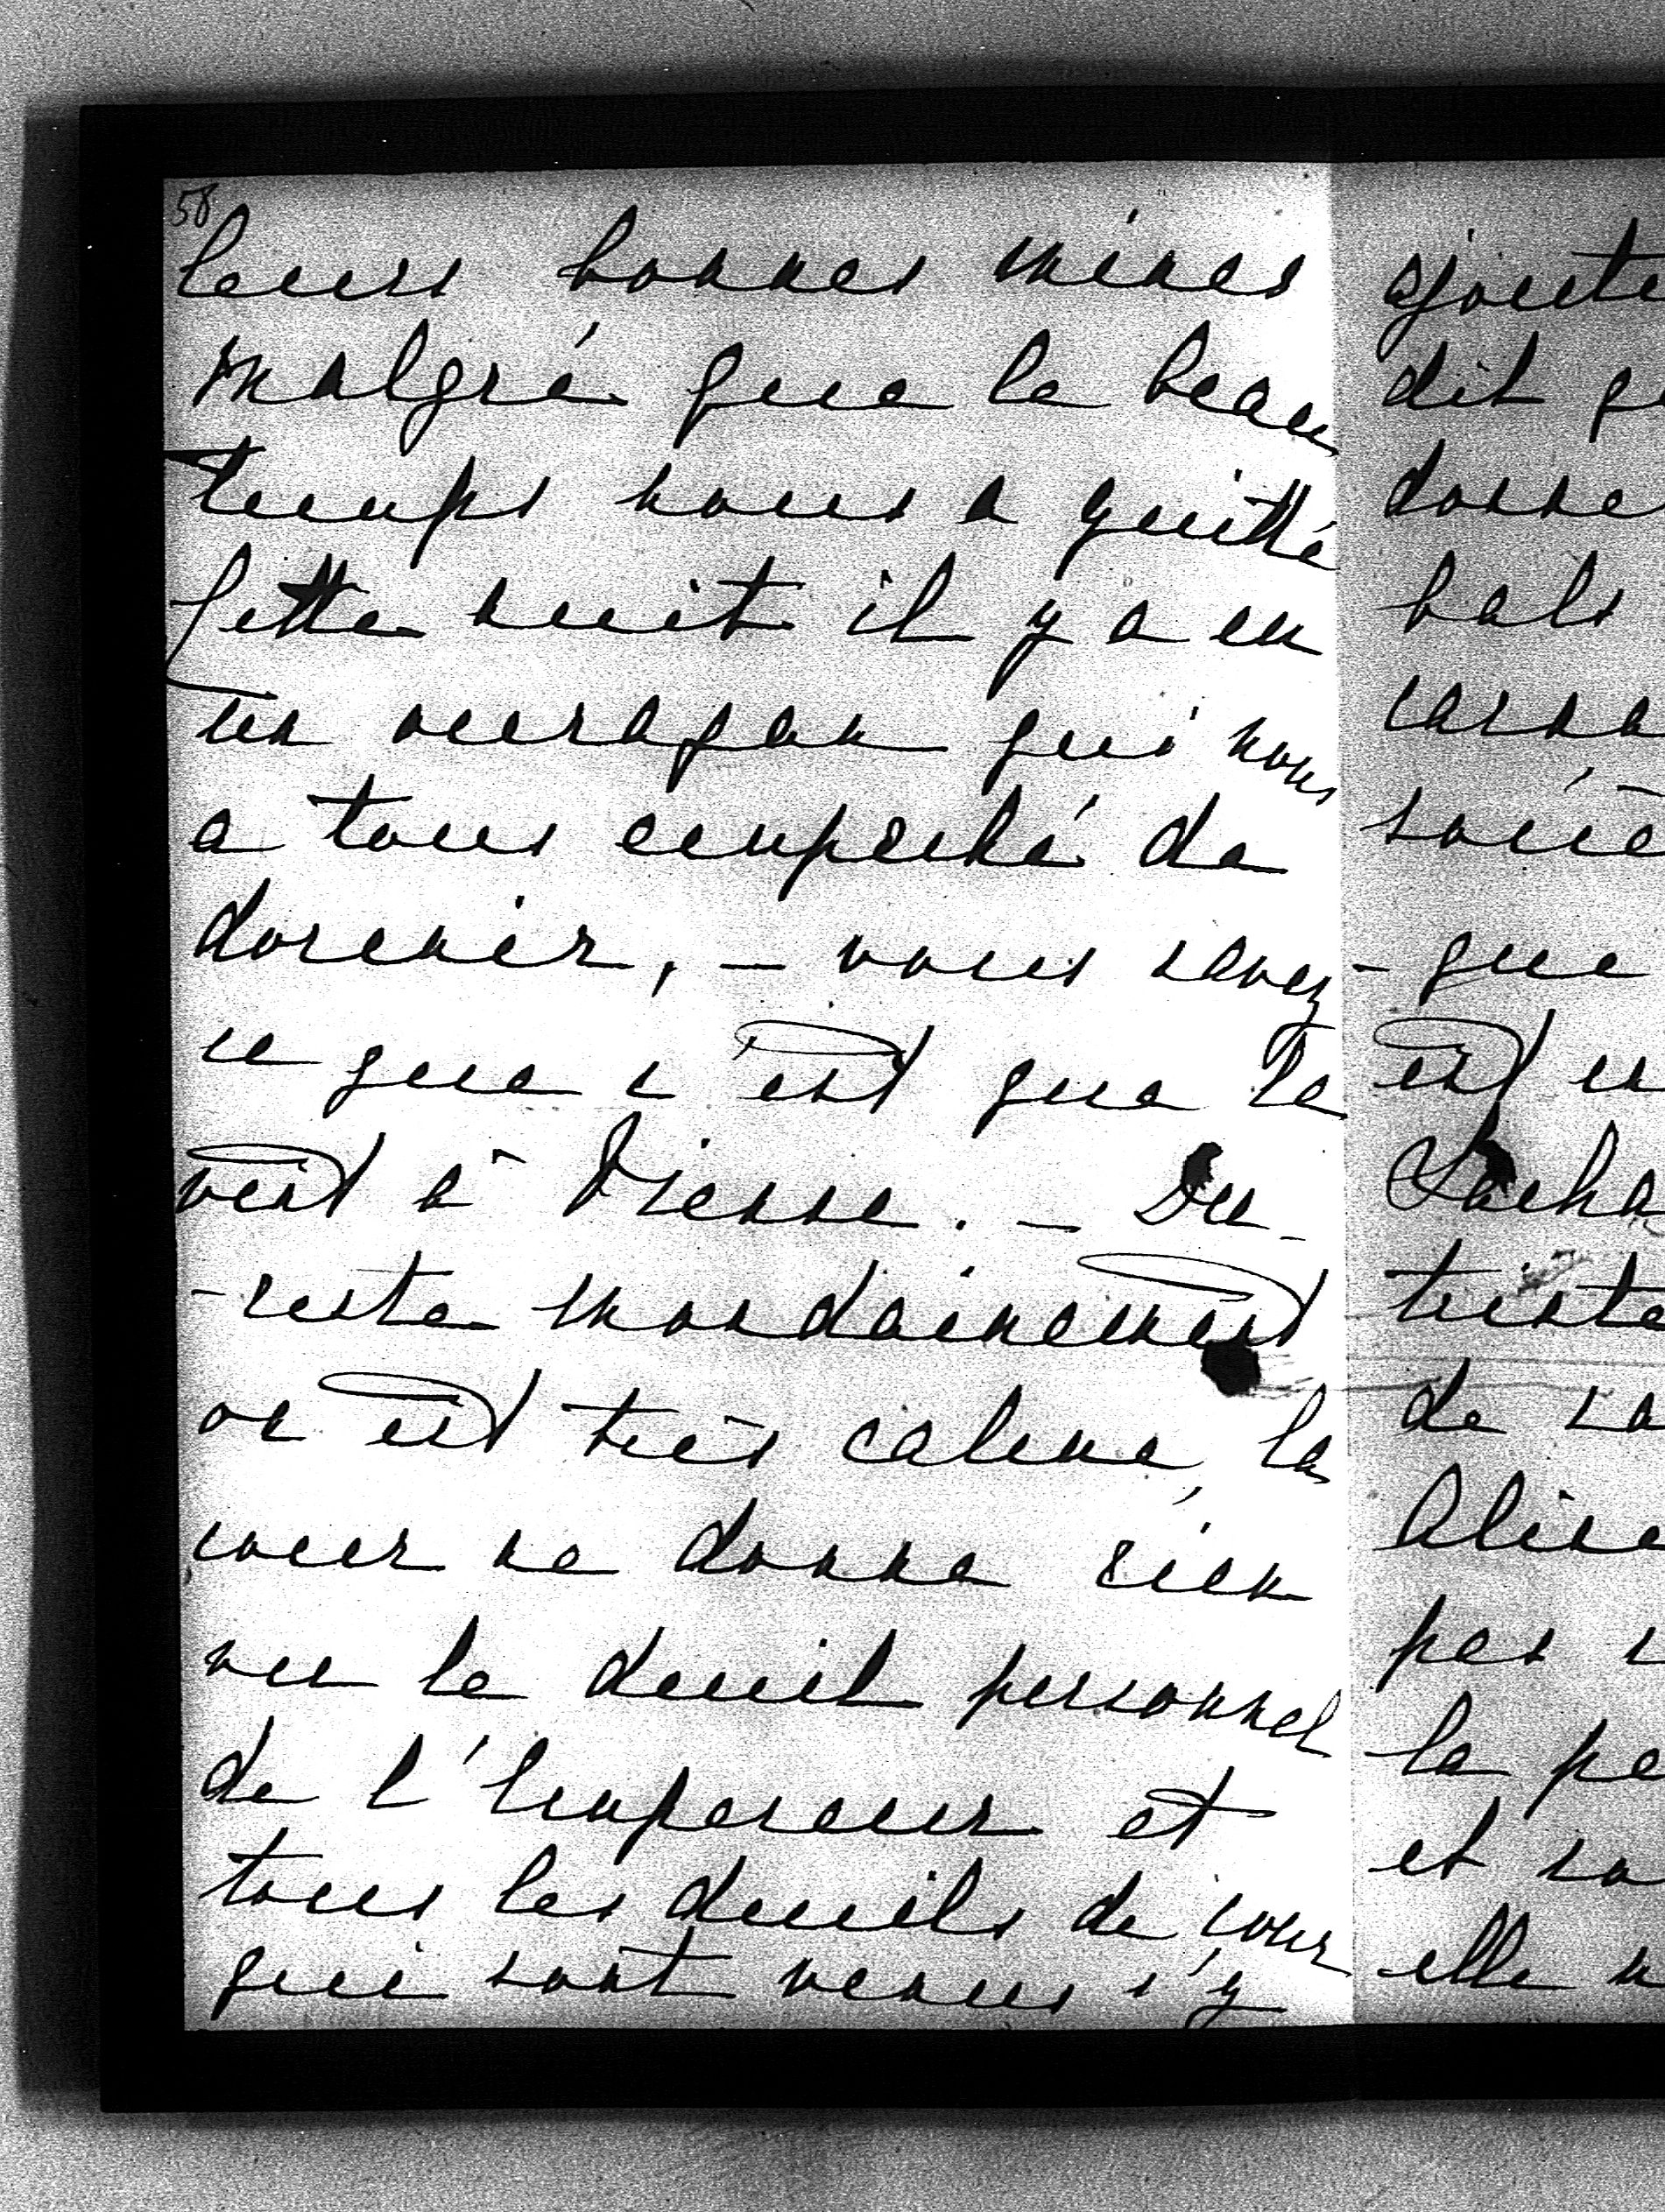 58
leurs bonnes mines
malgré que le beau
temps nous a quitté
Cette nuit il y a eu
un ouragan qui nous
a tous empeché de
dormir, – vous savez
ce que c'est que le
vent à Vienne. – Du
-reste mondainement
on est très calme, la
cour ne donne rien
vu le deuil personnel
de l'Empereur et
tous les deuils de cour
qui sont venus s'y
ajoute
dit qu
donne
bals
carna
socié
- que
est en
Sacha
triste
de sa
Alice
pas
la pe
et sa
elle n